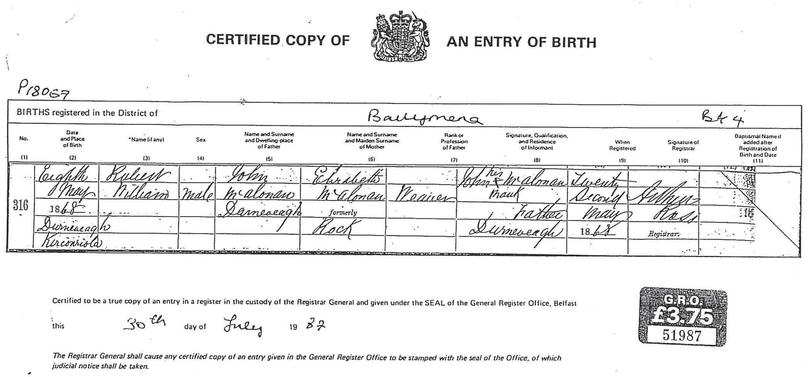 CERTIFIED COPY OF AN ENTRY OF BIRTH
P18067
BIRTHS registered in the District of Ballymena Bk 4
No. Date and Place of Birth *Name (if any) Sex Name and Surname and Dwelling-place of Father Name and Surname and Maiden Surname of Mother Rank or Profession of Father Signature, Qualification, and Residence of Informant When Registered Signature of Registrar Baptismal Name if added after Registration of Birth and Date
(1) (2) (3) (4) (5) (6) (7) (8) (9) (10) (11)
Eighth Robert John Elizabeth John his x McAlonan Twenty
May William Male McAlonan McAlonan Weaver mark Second Arthur
316 1868 Durneveagh formerly Father May Ross
Durneveagh Rock Durneveagh 1868 Registrar.
Kirconriola
Certified to be a true copy of an entry in a register in the custody of the Registrar General and given under the SEAL of the General Register Office, Belfast
this 30th day of July 19
The Registrar General shall cause any certified copy of an entry given in the General Register Office to be stamped with the seal of the Office, of which
judicial notice shall be taken.
G.R.O.
£3.75
51987